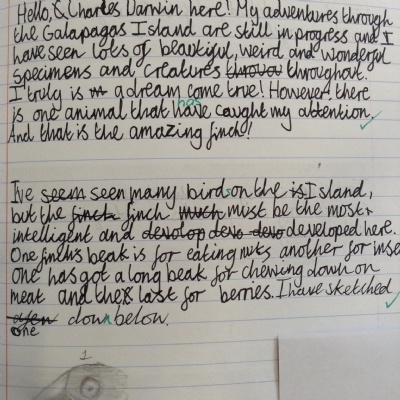 Hello, Charles Darwin here! My adventures through
the Galapagos Island are still in progress and I
have seen lots of beautiful, weird and wonderful
specimens and creatures throughout.
I truly is a dream come true! However, there
is one animal that has caught my attention.
And that is the amazing finch!
I've seen many birds on the Island,
but the finch must be the most
intelligent and developed here.
One finchs beak is for eating nuts another for inse
One has got a long beak for chewing down on
meat and the last for berries. I have sketched
one down below.
1